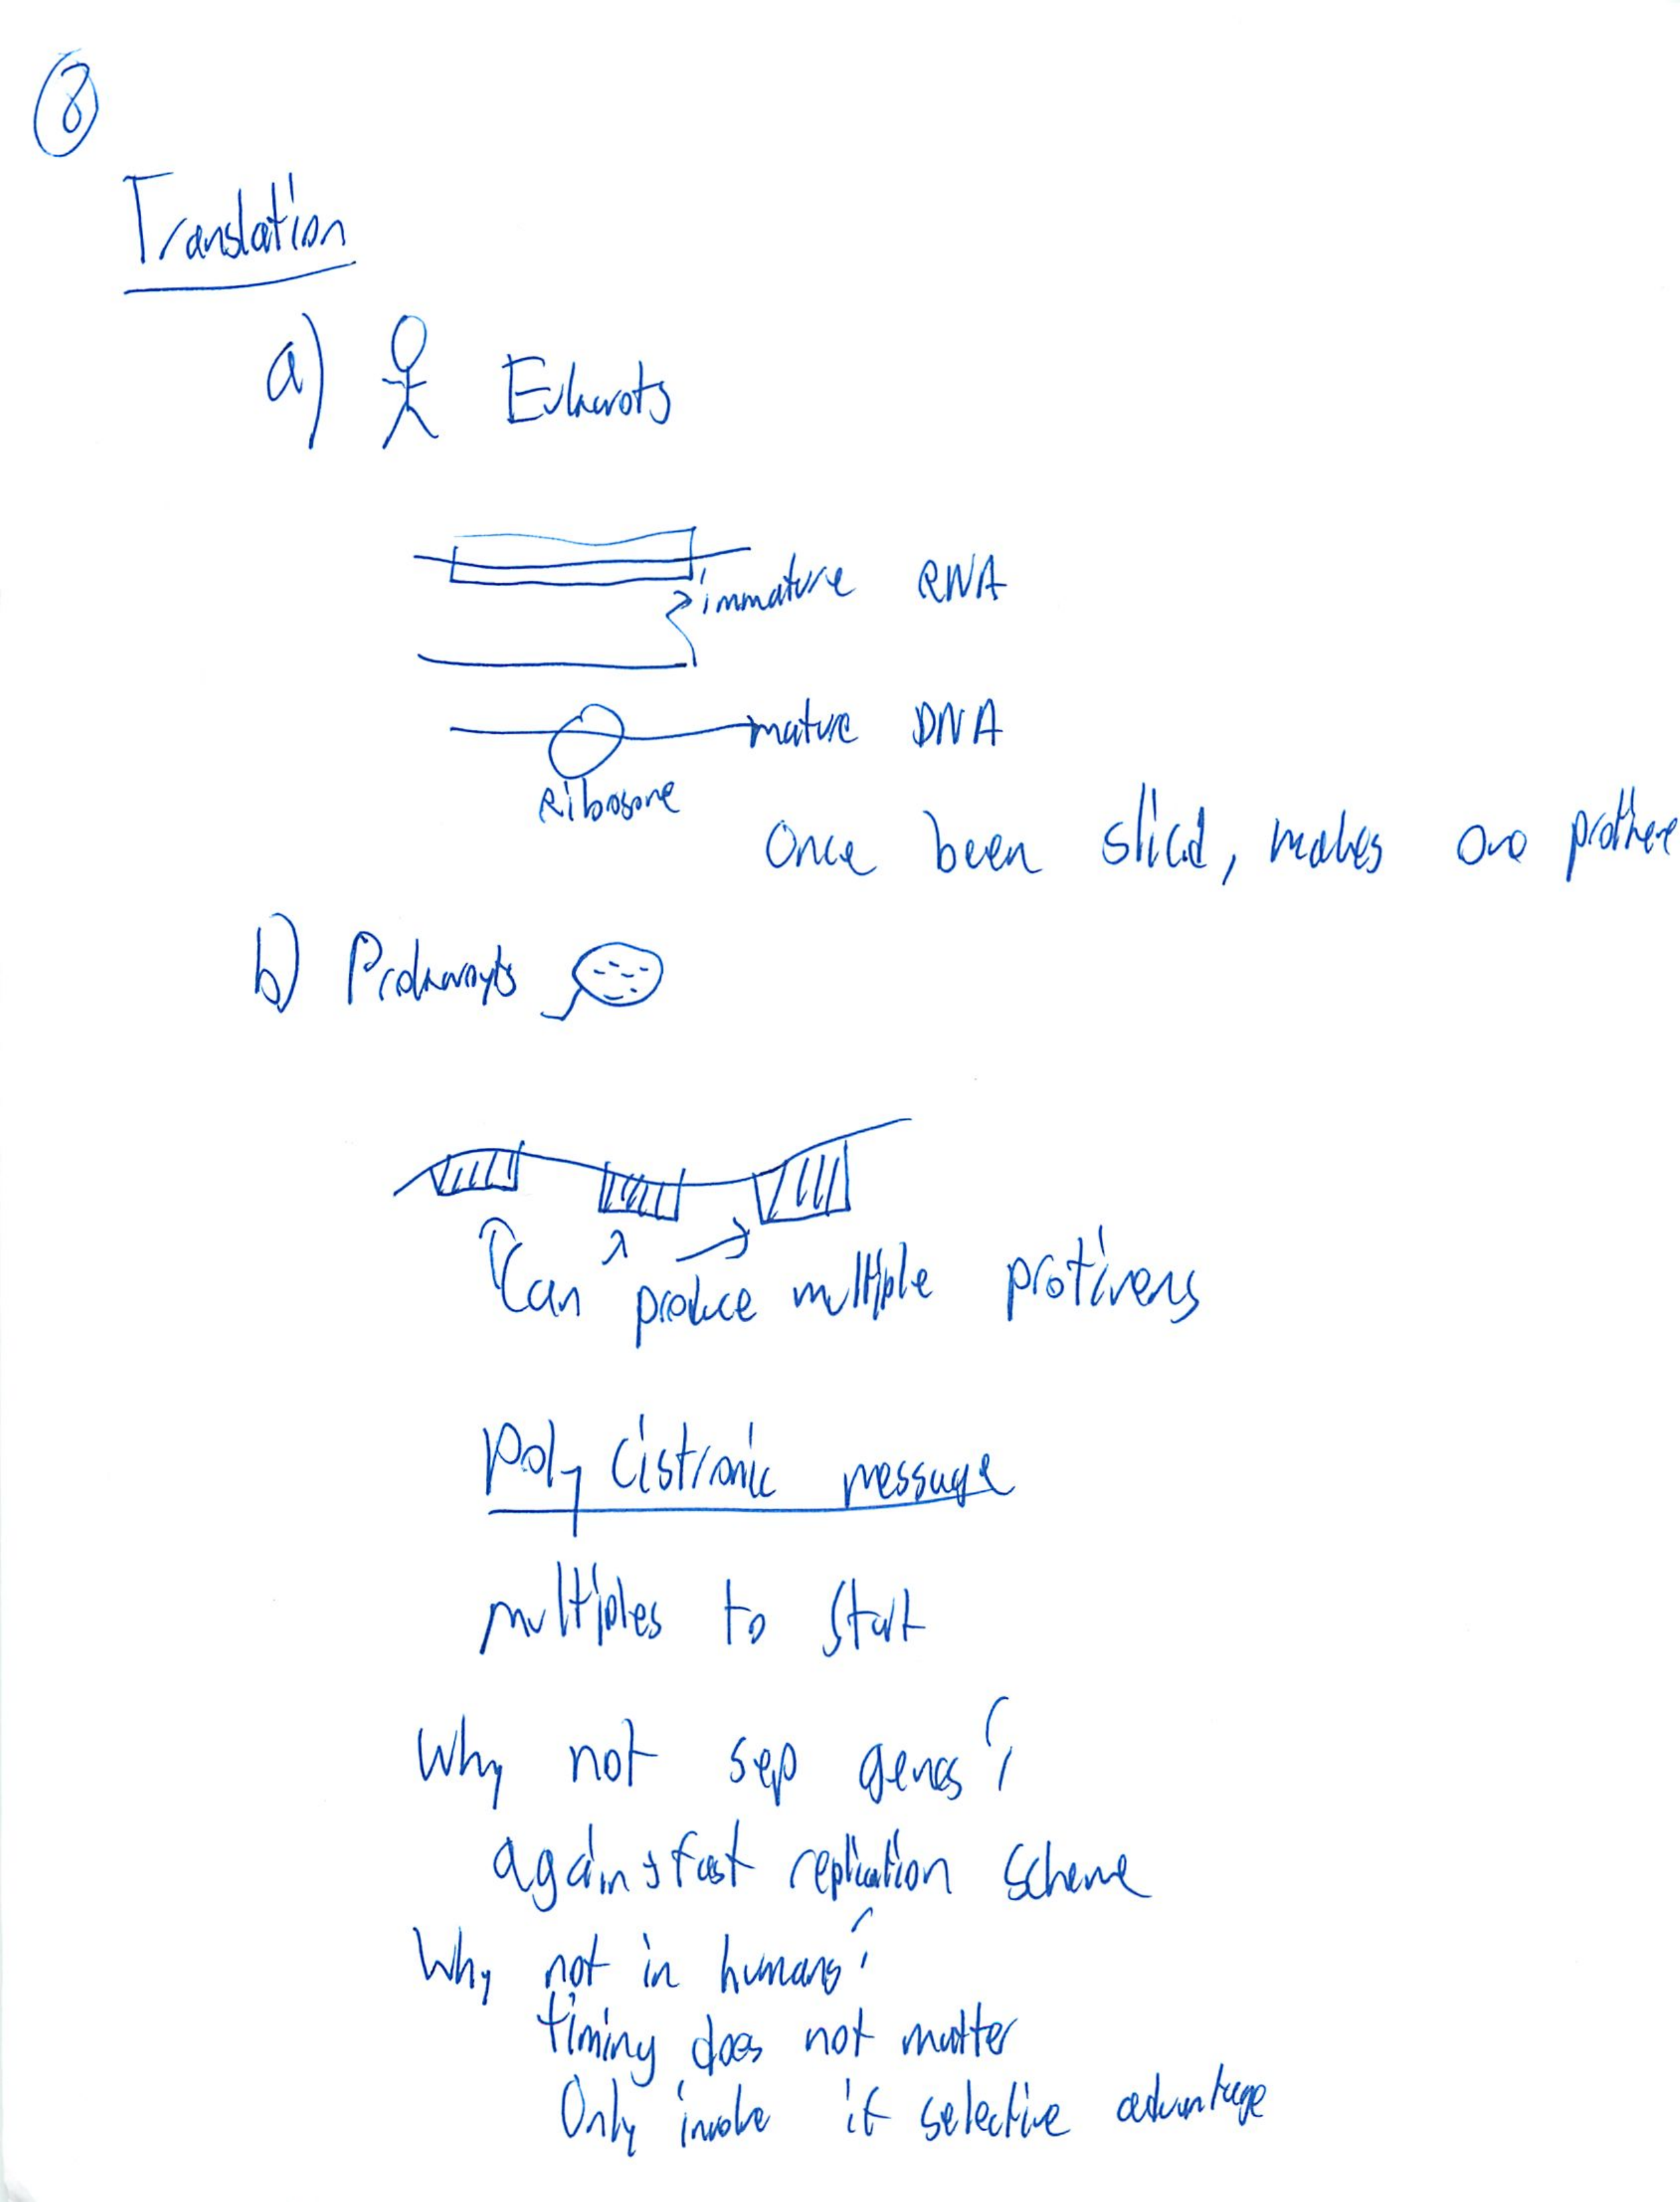 8
Translation
a) Eukarots
immature RNA
mature DNA
Ribosome
Once been slicd, makes one
b) Prokaroyts
Can produce multiple protivens
Poly Cistronic message
multiples to start
Why not sep genes?
against fast replication scheme
Why not in humans?
timing does not matter
Only invoke if selective advantage